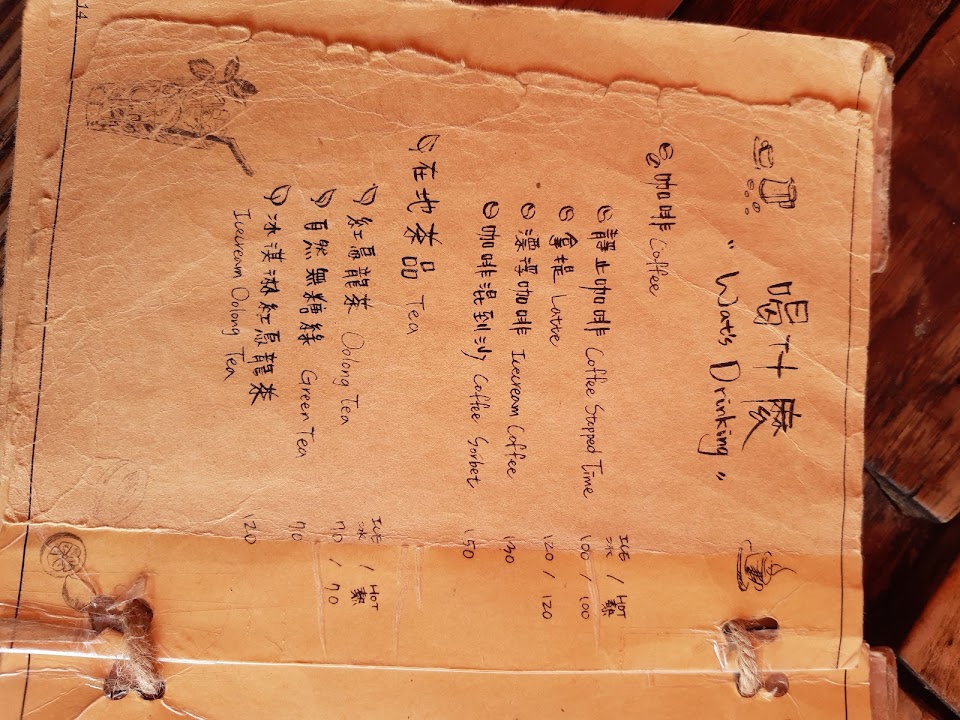 14
喝什麼
"Wat's Drinking"
咖啡 Coffee
ICE / HOT
冰 / 熱
靜止咖啡 Coffee Stopped Time 100 / 100
拿提 Latte 120 / 120
漂浮咖啡 Icecream Coffee 130
咖啡混到沙 Coffee Sorbet 150
在地茶品 Tea
ICE / HOT
冰 / 熱
紅烏龍茶 Oolong Tea 70 / 70
自然無糖綠 Green Tea 70
冰淇淋紅烏龍茶 120
Icecream Oolong Tea